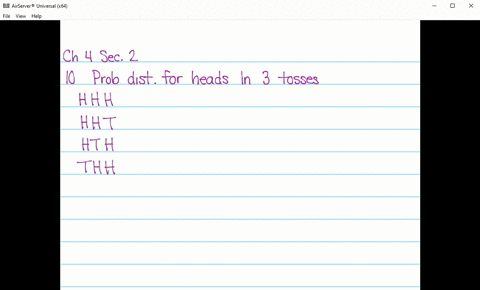 AirServer® Universal (x64)
File View Help
Ch 4 Sec. 2
10 Prob dist. for heads in 3 tosses
H H H
H H T
H T H
T H H